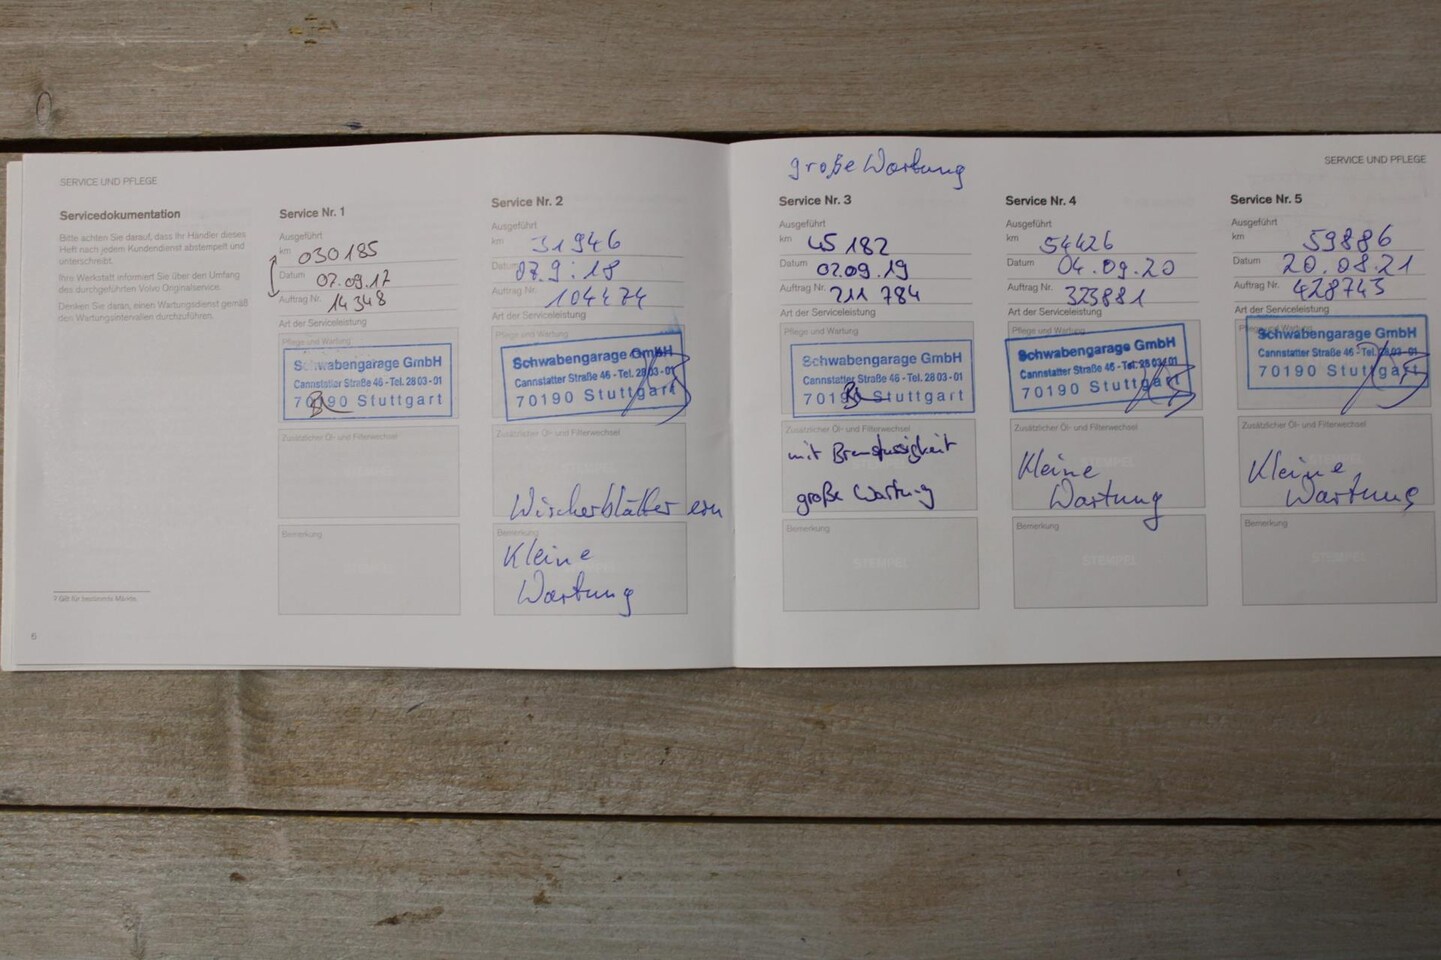 SERVICE UND PFLEGE
Servicedokumentation
Bitte achten Sie darauf, dass Ihr Händler dieses
Heft nach jedem Kundendienst abstempelt und
unterschreibt.
Ihre Werkstatt informiert Sie über den Umfang
des durchgeführten Volvo Originalservice.
Denken Sie daran, einen Wartungsdienst gemäß
den Wartungsintervallen durchzuführen.
6
Service Nr. 1
Ausgeführt
km 030185
Datum 07.09.17
Auftrag Nr. 14348
Art der Serviceleistung
Pflege und Wartung
Schwabengarage GmbH
Cannstatter Straße 46 - Tel. 28 03 - 01
70190 Stuttgart
Zusätzlicher Öl- und Filterwechsel
Bemerkung
Service Nr. 2
Ausgeführt
km 31946
Datum 07.9.18
Auftrag Nr. 104474
Art der Serviceleistung
Pflege und Wartung
Schwabengarage GmbH
Cannstatter Straße 46 - Tel. 28 03 - 01
70190 Stuttgart
Zusätzlicher Öl- und Filterwechsel
Wischerblätter ern
Bemerkung
Kleine
Wartung
SERVICE UND PFLEGE
große Wartung
Service Nr. 3
Ausgeführt
km 45182
Datum 02.09.19
Auftrag Nr. 211784
Art der Serviceleistung
Pflege und Wartung
Schwabengarage GmbH
Cannstatter Straße 46 - Tel. 28 03 - 01
70190 Stuttgart
Zusätzlicher Öl- und Filterwechsel
mit Bremsflüssigkeit
große Wartung
Bemerkung
STEMPEL
Service Nr. 4
Ausgeführt
km 54426
Datum 04.09.20
Auftrag Nr. 323881
Art der Serviceleistung
Pflege und Wartung
Schwabengarage GmbH
Cannstatter Straße 46 - Tel. 28 03 - 01
70190 Stuttgart
Zusätzlicher Öl- und Filterwechsel
Kleine
Wartung
Bemerkung
STEMPEL
Service Nr. 5
Ausgeführt
km 59886
Datum 20.08.21
Auftrag Nr. 428743
Art der Serviceleistung
Pflege und Wartung
Schwabengarage GmbH
Cannstatter Straße 46 - Tel. 28 03 - 01
70190 Stuttgart
Zusätzlicher Öl- und Filterwechsel
Kleine
Wartung
Bemerkung